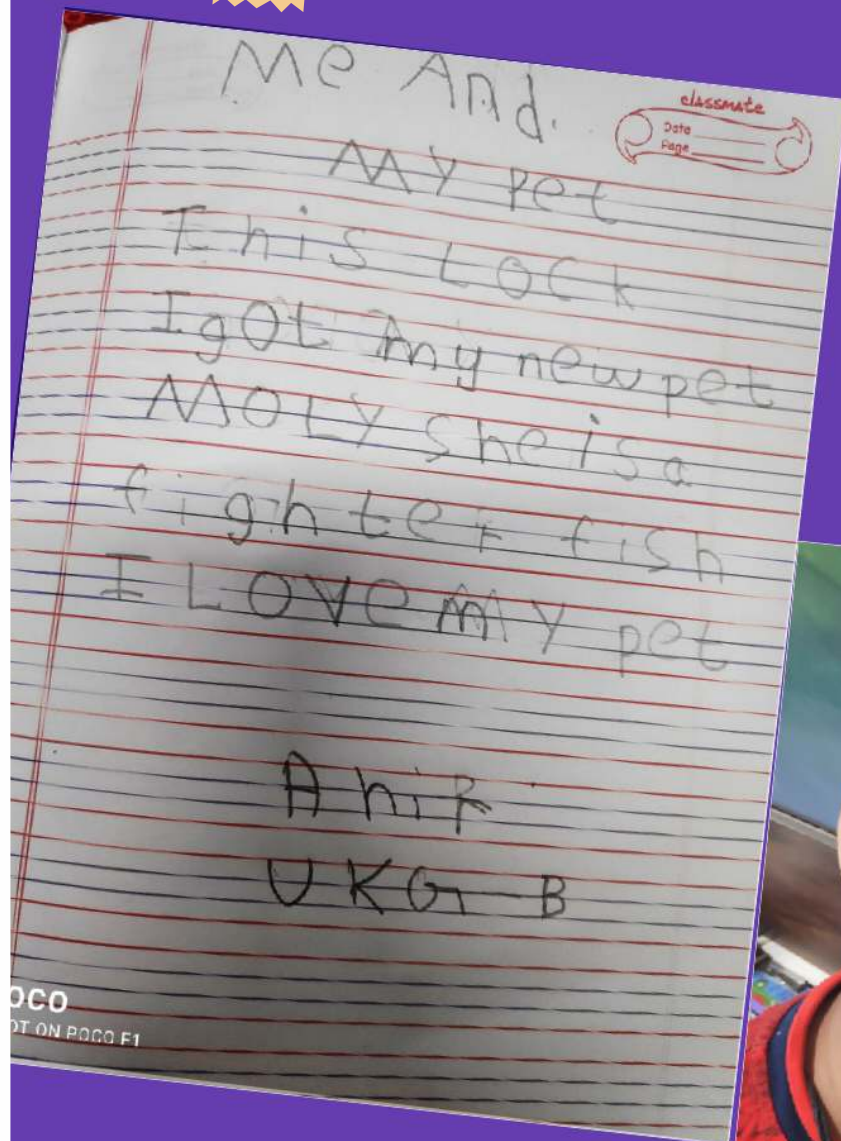 Me And.
classmate
Date
Page
My Pet
This Lock
I got my new pet
MOLY she is a
fighter fish
I LOVE MY pet
UKG B
OCO
OT ON POCO F1